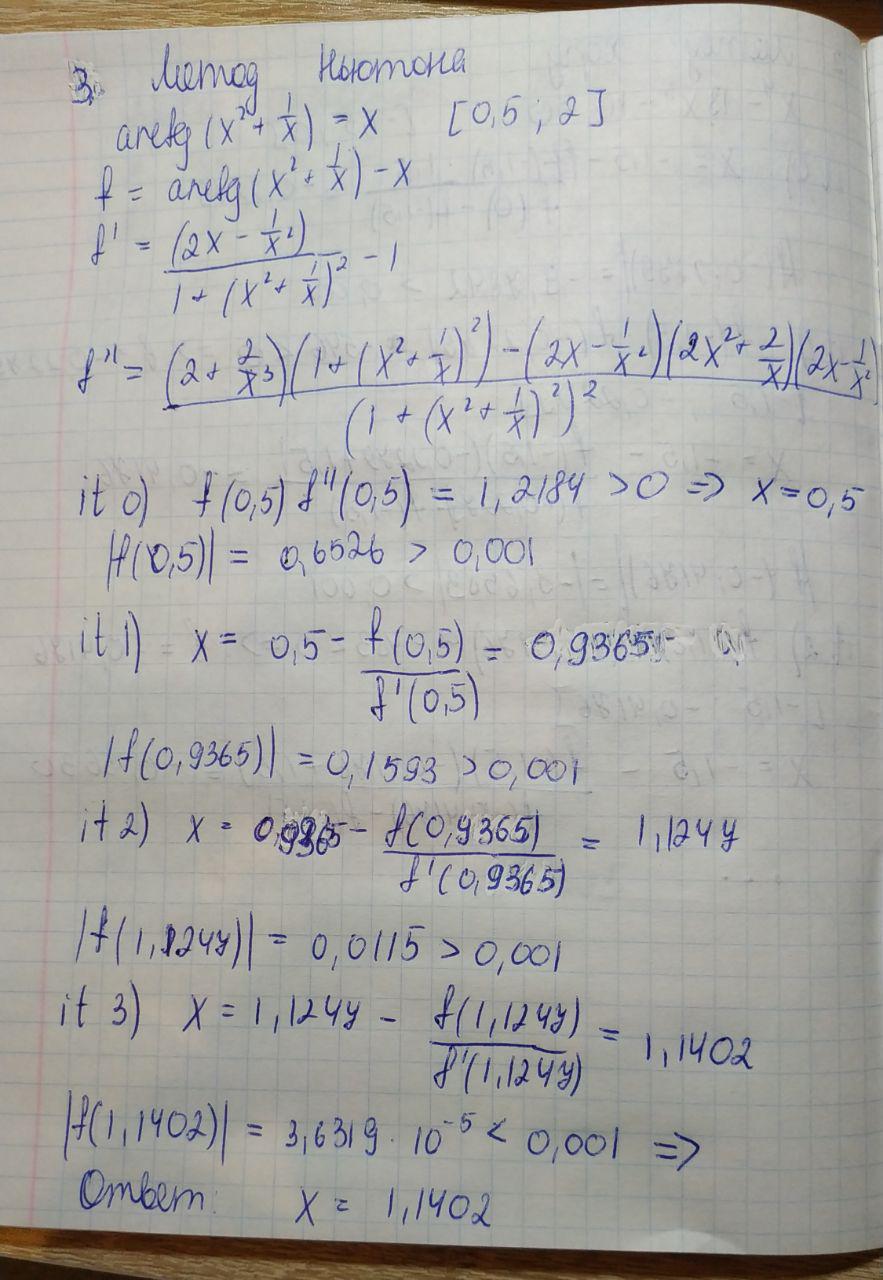 3. Метод Ньютона
arctg(x² + 1/x) = x [0,5 ; 2]
f = arctg(x² + 1/x) - x
f' = (2x - 1/x²) / (1 + (x² + 1/x)²) - 1
f'' = ((2 + 2/x³)(1 + (x² + 1/x)²) - (2x - 1/x²)(2x² + 2/x)(2x - 1/x²)) / (1 + (x² + 1/x)²)²
it 0) f(0,5) f''(0,5) = 1,2184 > 0 => x = 0,5
|f(0,5)| = 0,6526 > 0,001
it 1) x = 0,5 - f(0,5)/f'(0,5) = 0,9365
|f(0,9365)| = 0,1593 > 0,001
it 2) x = 0,9365 - f(0,9365)/f'(0,9365) = 1,1244
|f(1,1244)| = 0,0115 > 0,001
it 3) x = 1,1244 - f(1,1244)/f'(1,1244) = 1,1402
|f(1,1402)| = 3,6319 · 10⁻⁵ < 0,001 =>
Ответ: x = 1,1402